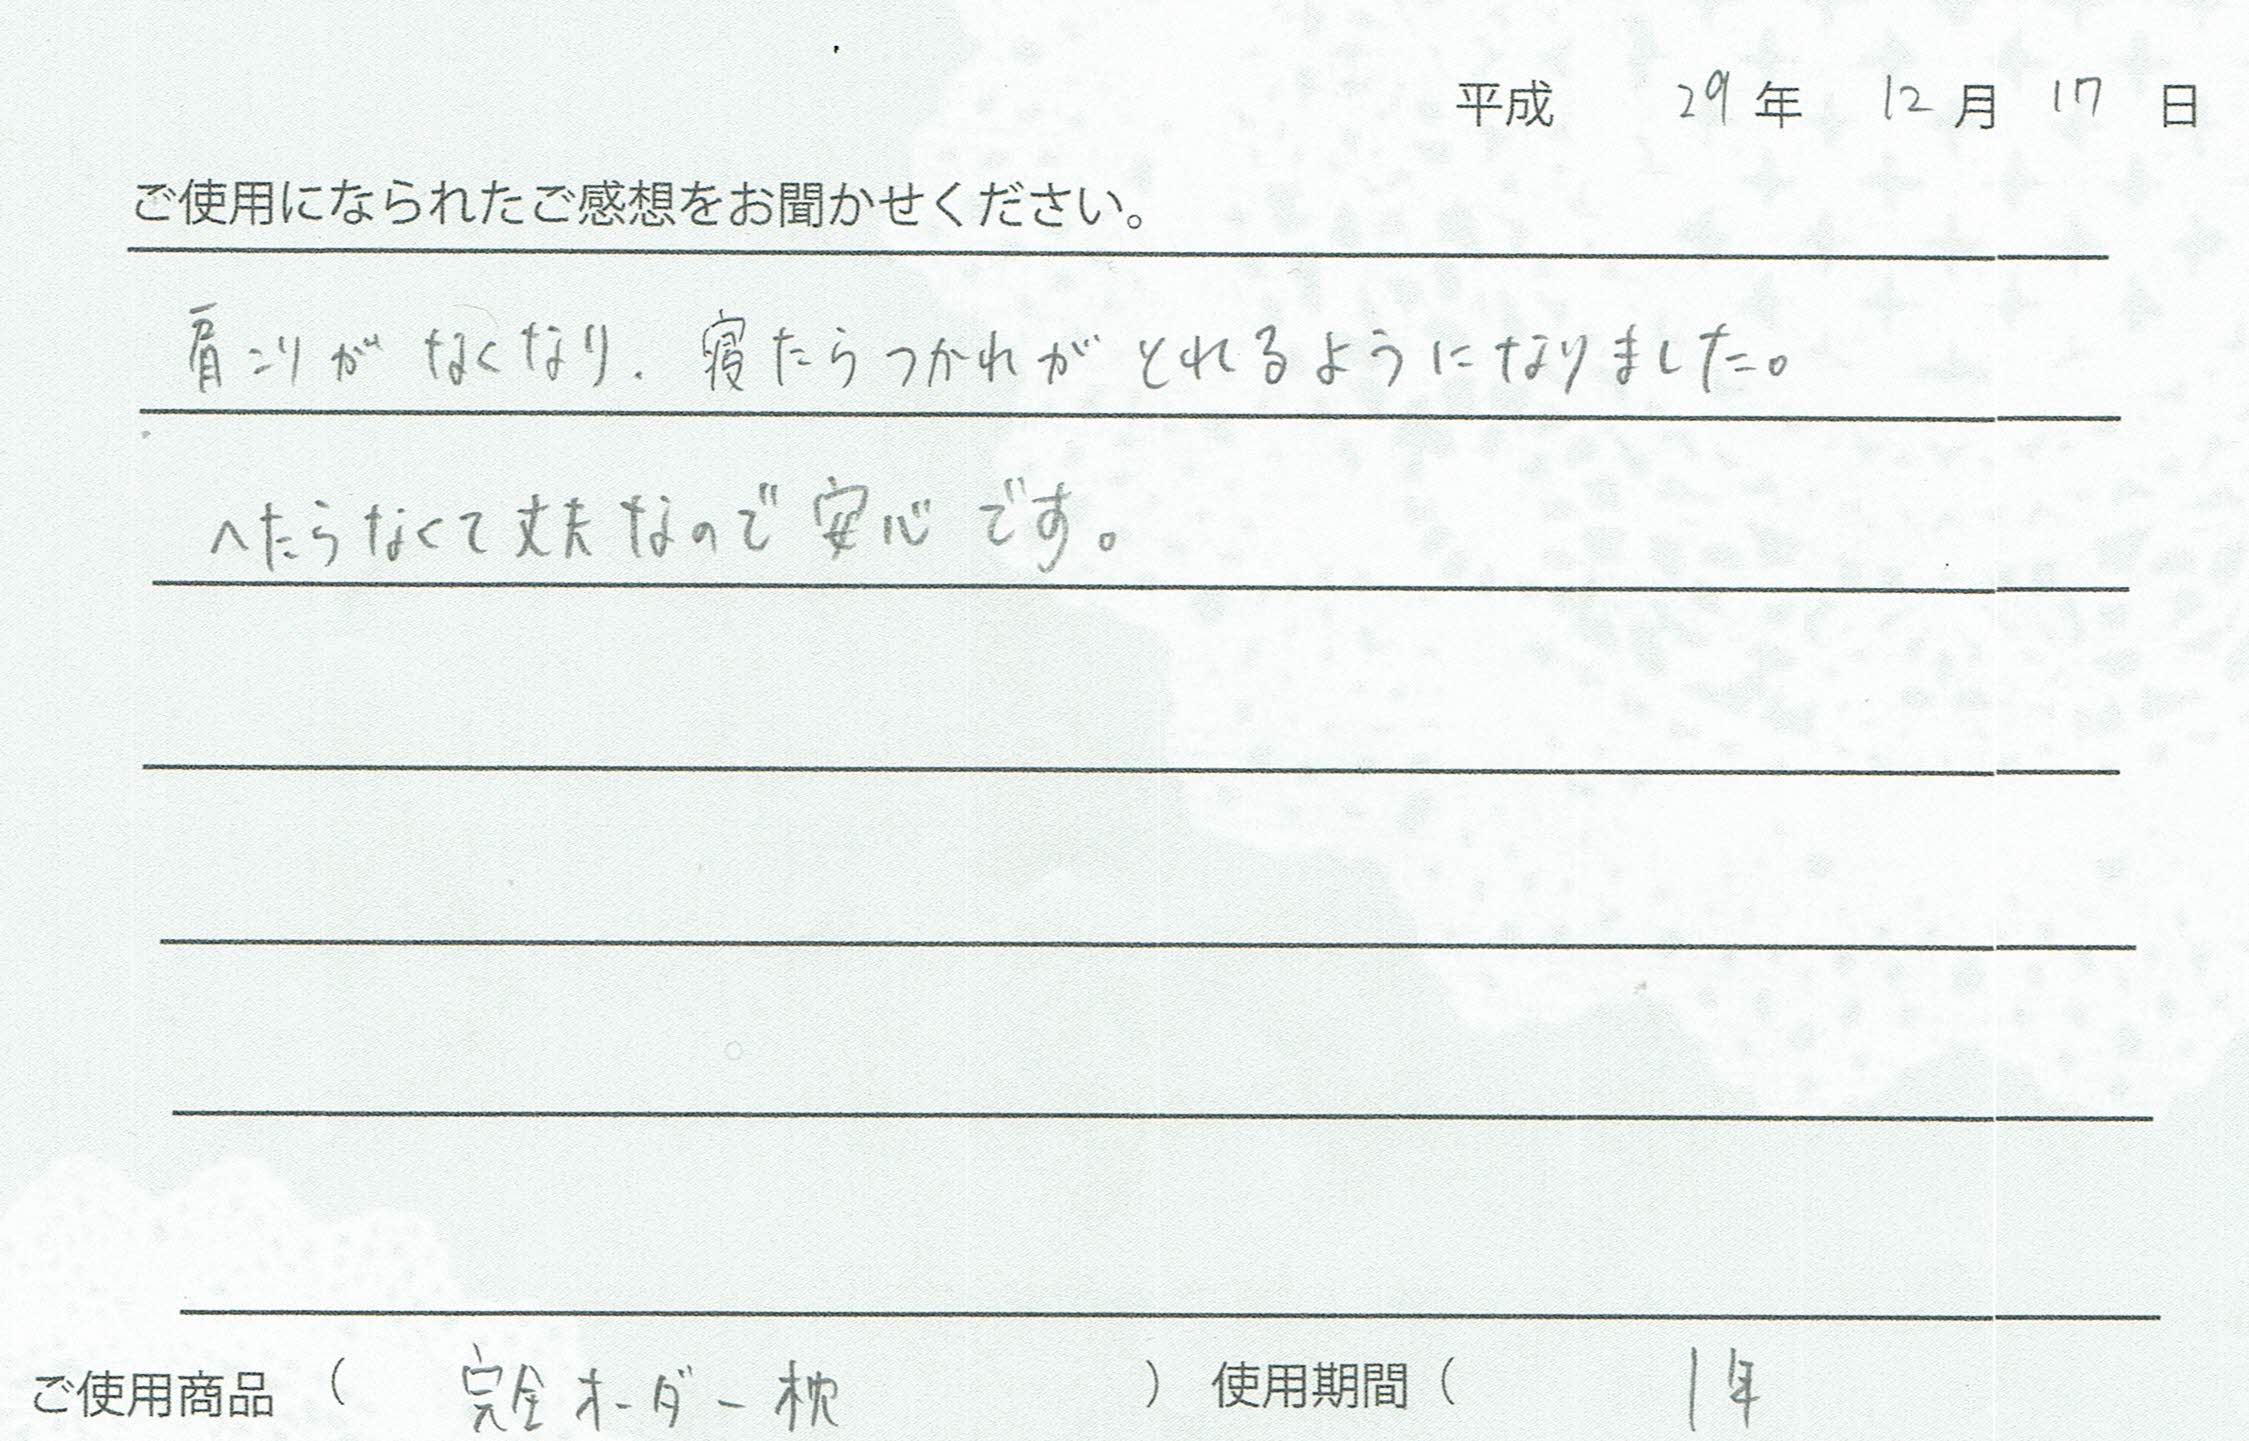 平成 29年 12月 17日
ご使用になられたご感想をお聞かせください。
肩こりがなくなり、寝たらつかれがとれるようになりました。
へたらなくて丈夫なので安心です。
ご使用商品（ 完全オーダー枕 ）使用期間（ 1年